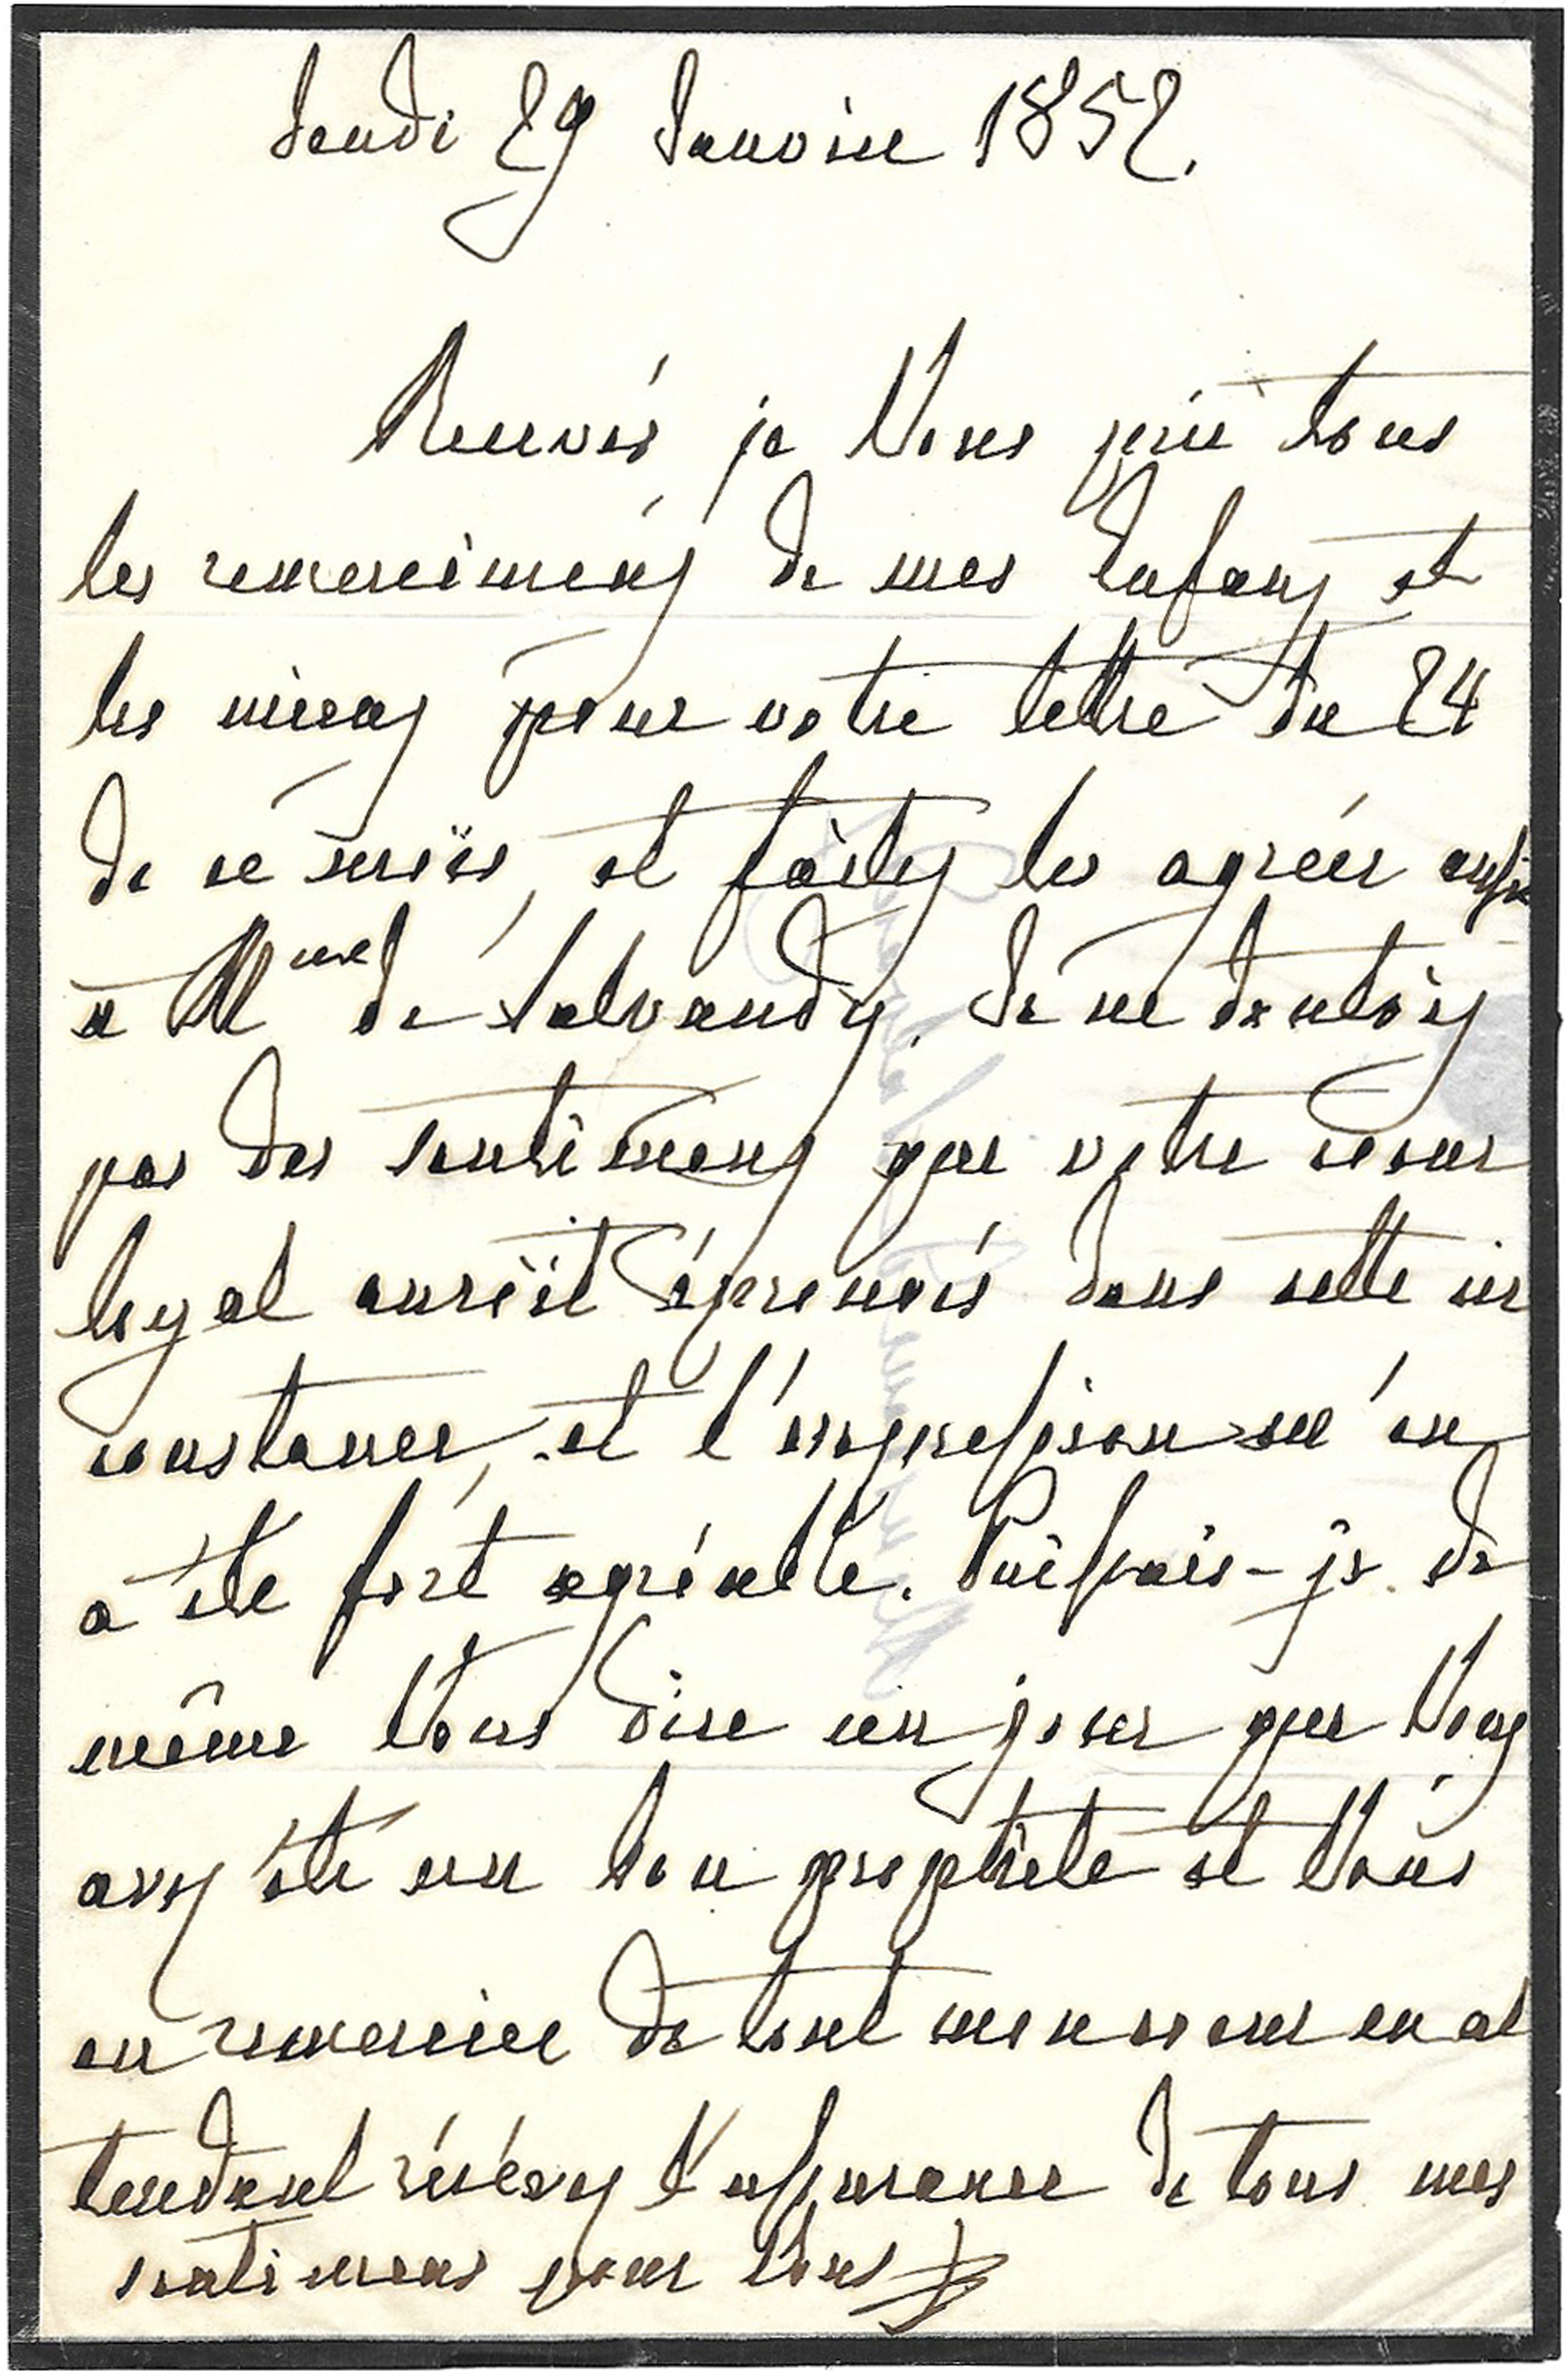 Jeudi 29 Janvier 1852.
Recevés je Vous prie tous
les remercimens de mes Enfans et
les miens pour votre lettre du 24
de ce mois, et faites les agréer aussi
à Mme de Salvandy. Je ne doutois
pas des sentimens que votre coeur
loyal auroit éprouvés dans cette cir
constance, et l'expression m'en
a été fort agréable. Puissais-je de
même Vous dire un jour que Vous
avez été un bon prophète et Vous
en remercier de tout mon coeur en at
tendant recevez l'assurance de tous mes
sentimens pour Vous